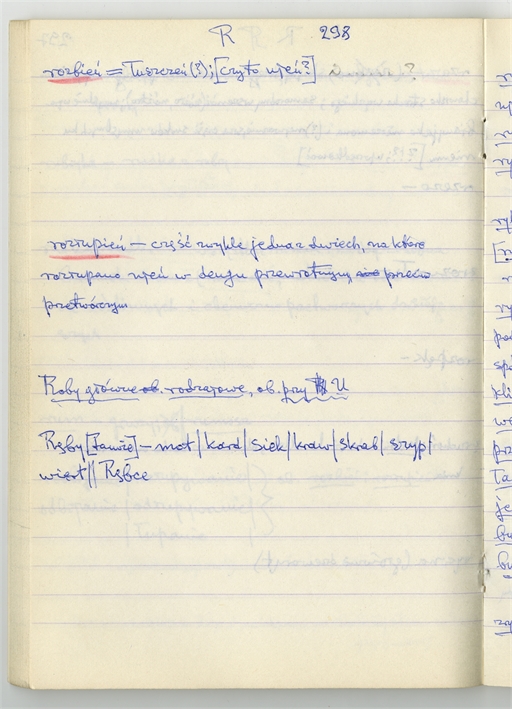 R 298
rozbień = Tuszczeń(?); [czy to wjeń?] ?
rozrupień — część zwykle jedna z dwiech, na które
rozrupano wjeń w dengu przewrotnym, przeciw
przetwórczym
Roby główne ob. rodzajowe, ob. przy U
Ręby [Tawię] — mot | kord | siek | kraw | skrob | szyp |
wiert || Rębce